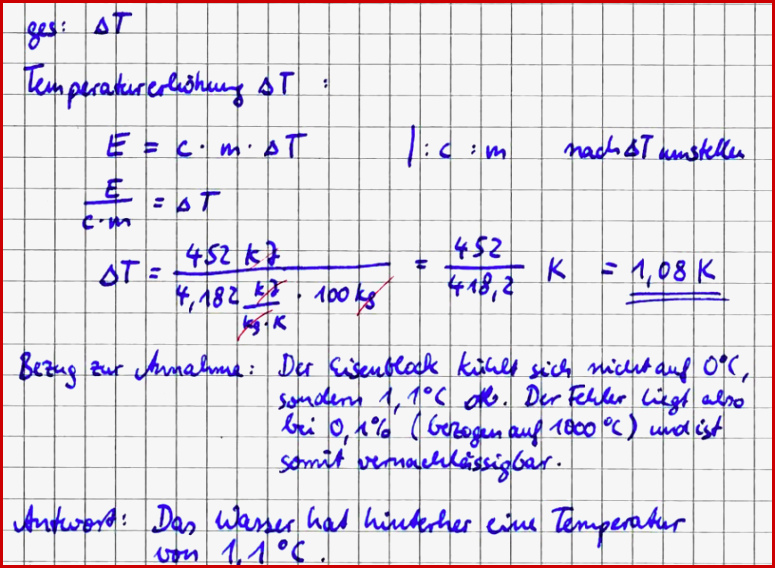 ges: ΔT
Temperaturerhöhung ΔT :
E = c · m · ΔT |: c : m nach ΔT umstellen
E/(c·m) = ΔT
ΔT = 452 kJ / (4,182 kJ/(kg·K) · 100 kg) = 452/418,2 K = 1,08 K
Bezug zur Annahme: Der Eisenblock kühlt sich nicht auf 0°C,
sondern 1,1°C ab. Der Fehler liegt also
bei 0,1% (bezogen auf 1000°C) und ist
somit vernachlässigbar.
Antwort: Das Wasser hat hinterher eine Temperatur
von 1,1°C.